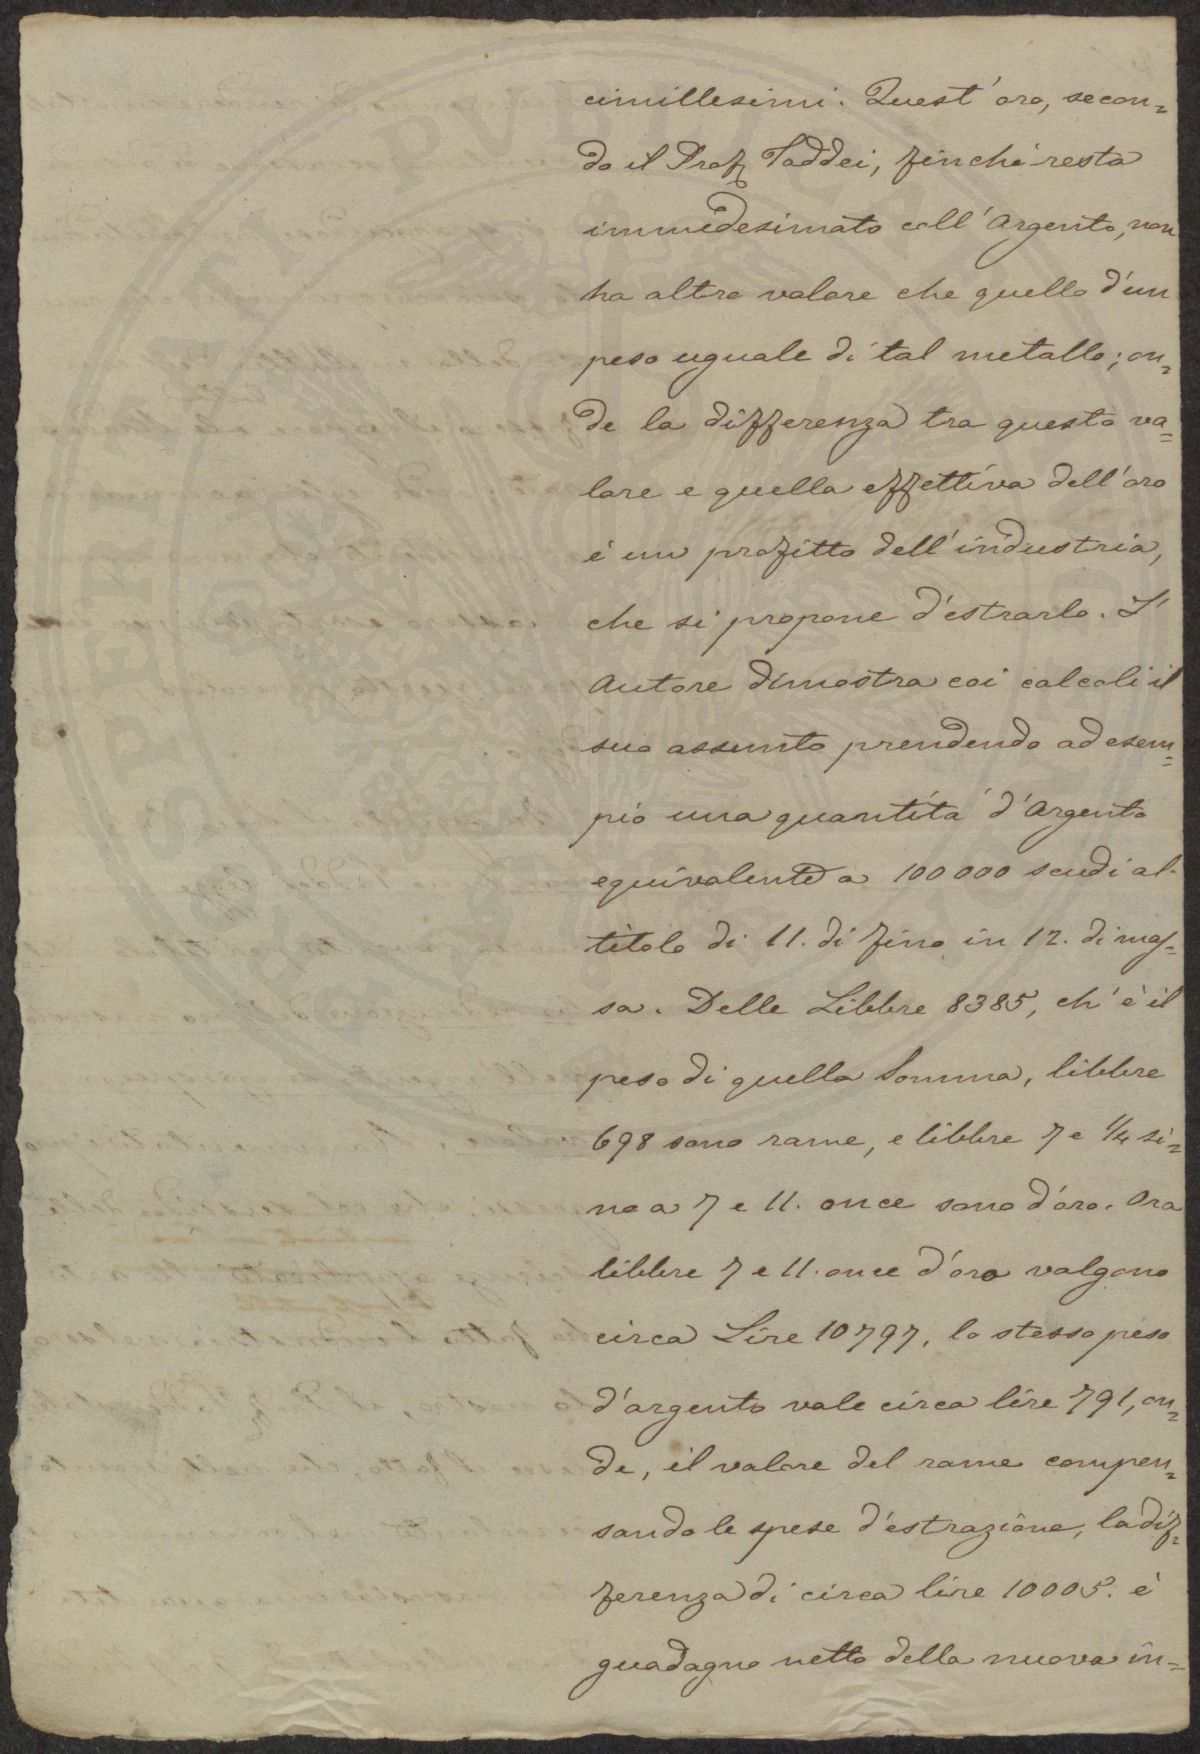 cimillesimi. Quest'oro, secon=
do il Prof. Taddei, finchè resta
immedesimato coll'Argento, non
ha altro valore che quello d'un
peso uguale di tal metallo; on=
de la differenza tra questo va=
lore e quello effettivo dell'oro
è un profitto dell'industria,
che si propone d'estrarlo. L'
Autore dimostra coi calcoli il
suo assunto prendendo ad esem=
pio una quantità d'Argento
equivalente a 100000 scudi al
titolo di 11. di fino in 12. di mas=
sa. Delle Libbre 8385, ch'è il
peso di quella Somma, libbre
698 sono rame, e libbre 7 e 1/4 si=
no a 7 e 11. once sono d'oro. Ora
libbre 7 e 11. once d'oro valgono
circa Lire 10797, lo stesso peso
d'argento vale circa lire 791, on=
de, il valore del rame compen=
sando le spese d'estrazione, la dif=
ferenza di circa lire 10005. è
guadagno netto della nuova in=